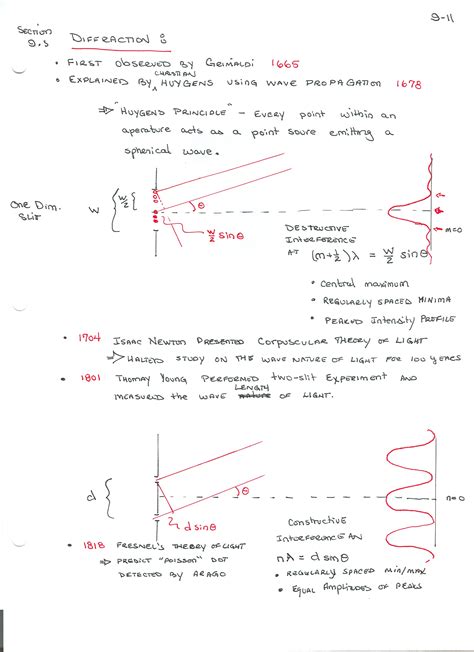 9-11
Section
9.5 DIFFRACTION :
• FIRST OBSERVED BY GRIMALDI 1665
CHRISTIAN
• EXPLAINED BY ^ HUYGENS USING WAVE PROPAGATION 1678
⇒ "HUYGENS PRINCIPLE" - EVERY point within an
aperature acts as a point soure emitting a
spherical wave.
One Dim.
Slit
w
w/2
θ
w/2 sinθ
m=0
DESTRUCTIVE
INTERFERENCE
AT (m+½)λ = w/2 sinθ
• central maximum
• REGULARLY SPACED MINIMA
• PEAKED Intensity PROFILE
• 1704 ISAAC NEWTON PRESENTED CORPUSCULAR THEORY OF LIGHT
⇒ HALTED STUDY ON THE WAVE NATURE OF LIGHT FOR 100 YEARS
• 1801 THOMAY YOUNG PERFORMED two-slit EXPERIMENT AND
LENGTH
MEASURED the WAVE nature OF LIGHT.
d
θ
n=0
d sinθ
Constructive
Interference AN
nλ = d sinθ
• REGULARLY SPACED MIN/MAX
• EQUAL AMPLITUDES OF PEAKS
• 1818 FRESNEL'S THEORY OF LIGHT
⇒ PREDICT "POISSON" DOT
DETECTED BY ARAGO